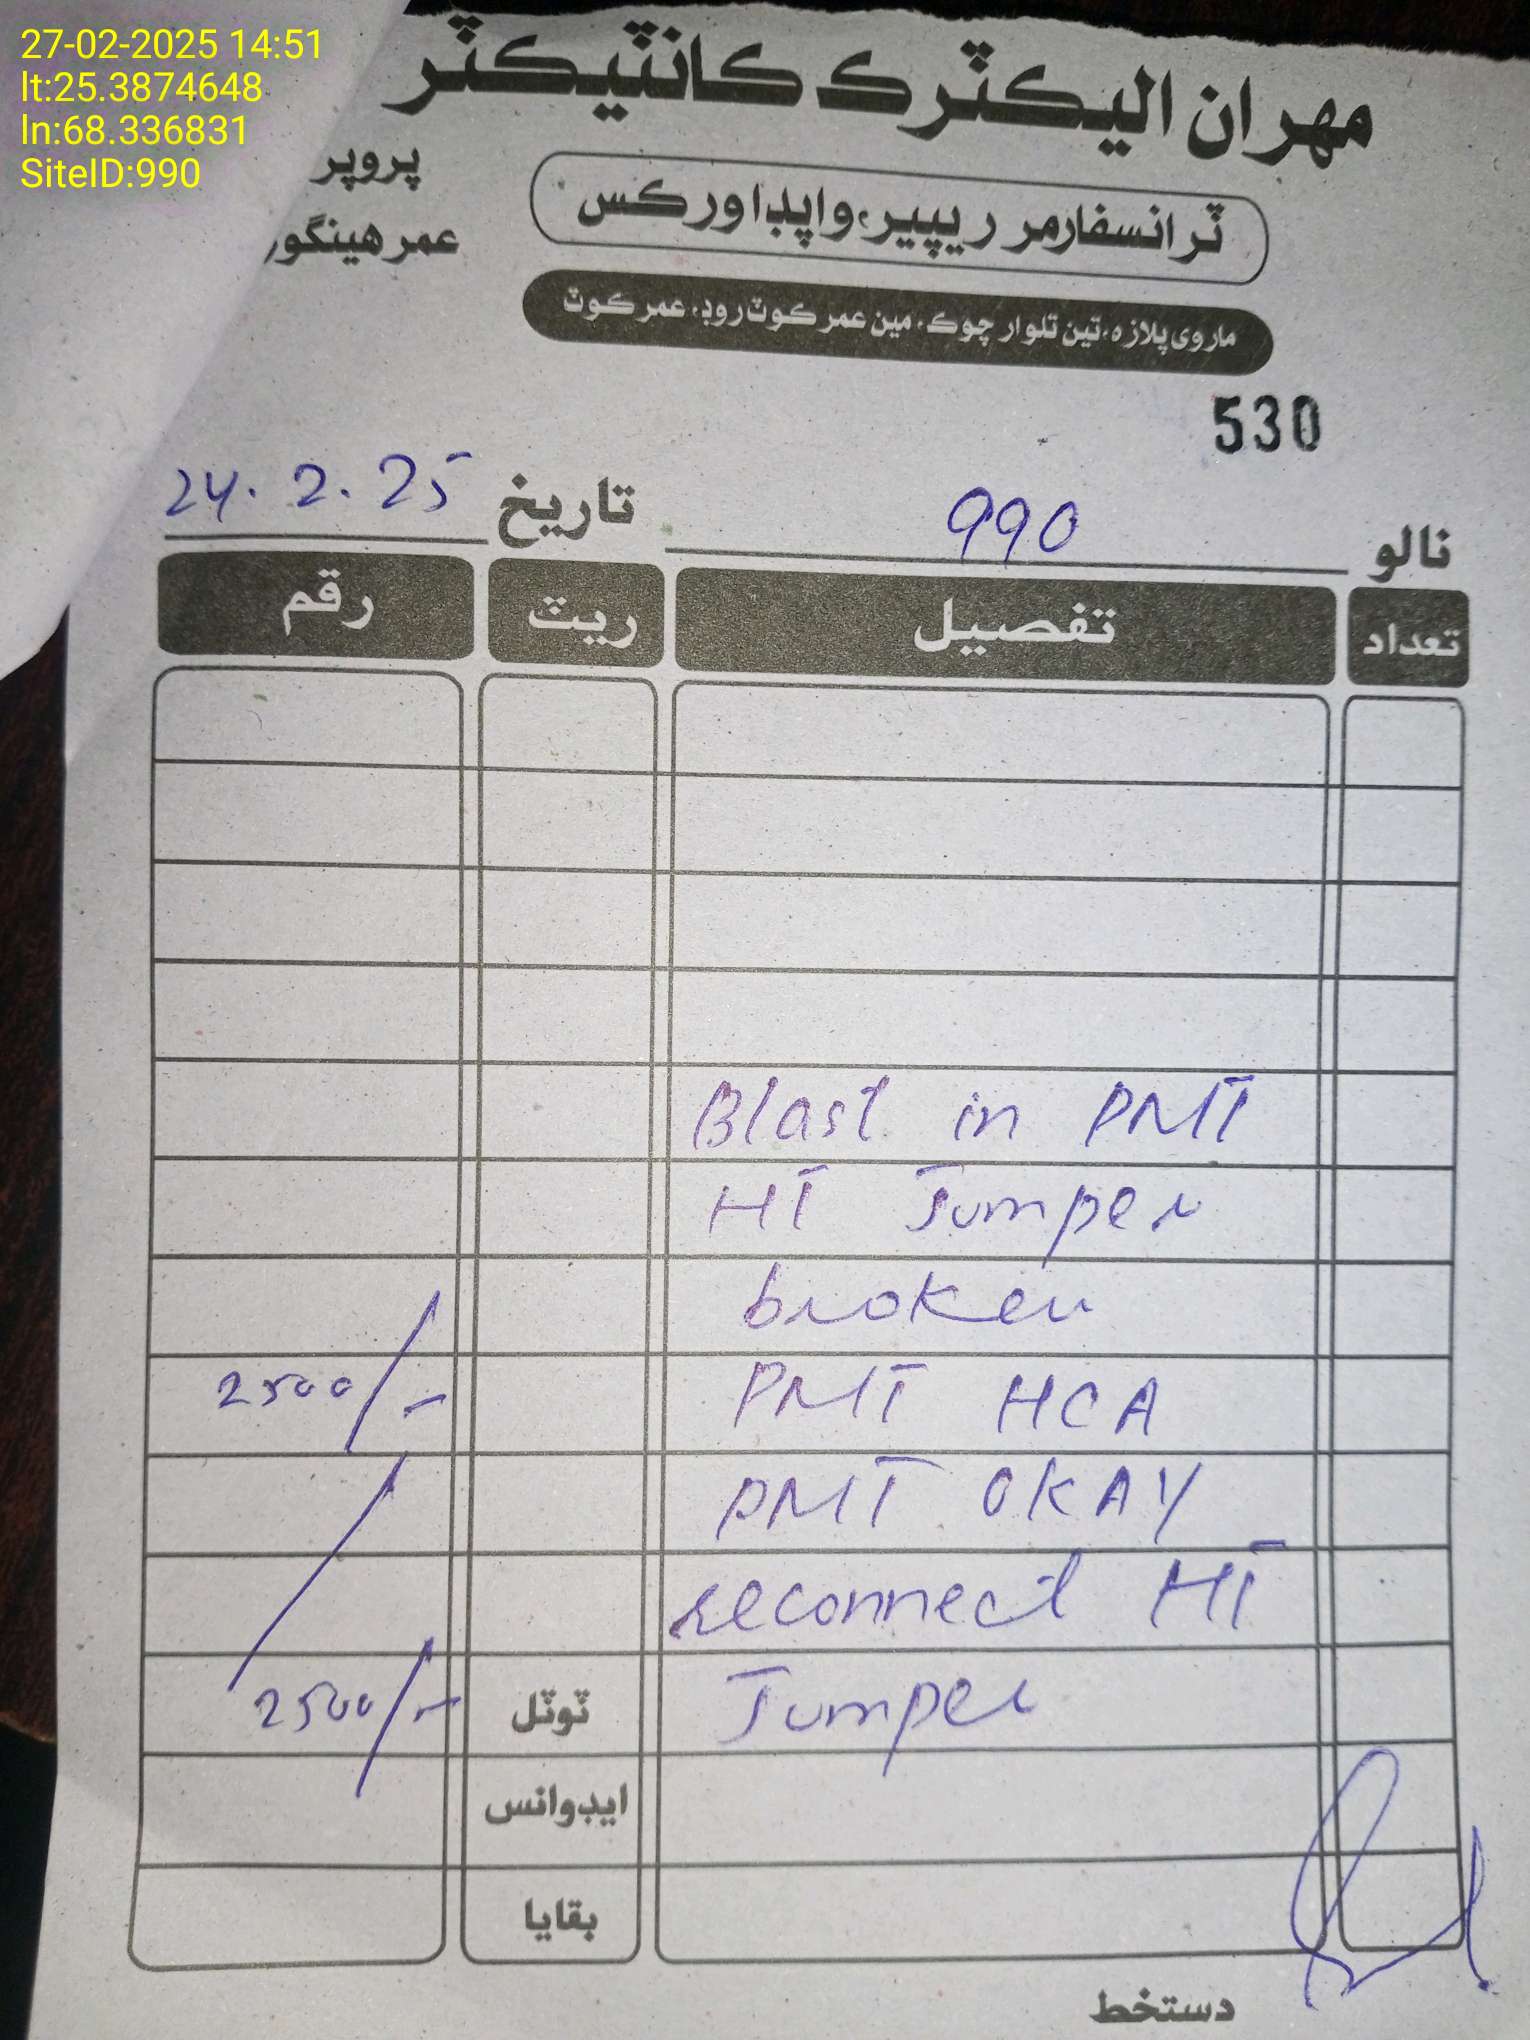 27-02-2025 14:51
lt:25.3874648
ln:68.336831
SiteID:990
مهران اليڪٽرڪ ڪانٽيڪٽر
پروپر
عمر هينگور
ٽرانسفارمر ريپير، واپڊا ورڪس
ماروي پلازه، ٽين تلوار چوڪ، مين عمرڪوٽ روڊ، عمرڪوٽ
530
نالو 990 تاريخ 24.2.25
تعداد تفصيل ريٽ رقم
Blast in PMT
HT Jumper
broken
PMT HCA 2500/-
PMT OKAY
reconnect HT
Jumper ٽوٽل 2500/-
ايڊوانس
بقايا
دستخط